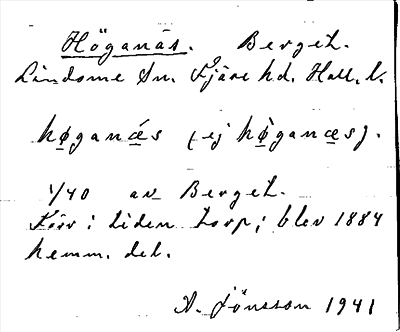 Höganäs. Berget.
Lindome Sn. Fjäre hd. Hall. l.
høganǽs (ej hø̀ganæs).
1/40 av Berget.
Förr i tiden torp; blev 1884
hemm. del.
A. Jönsson 1941